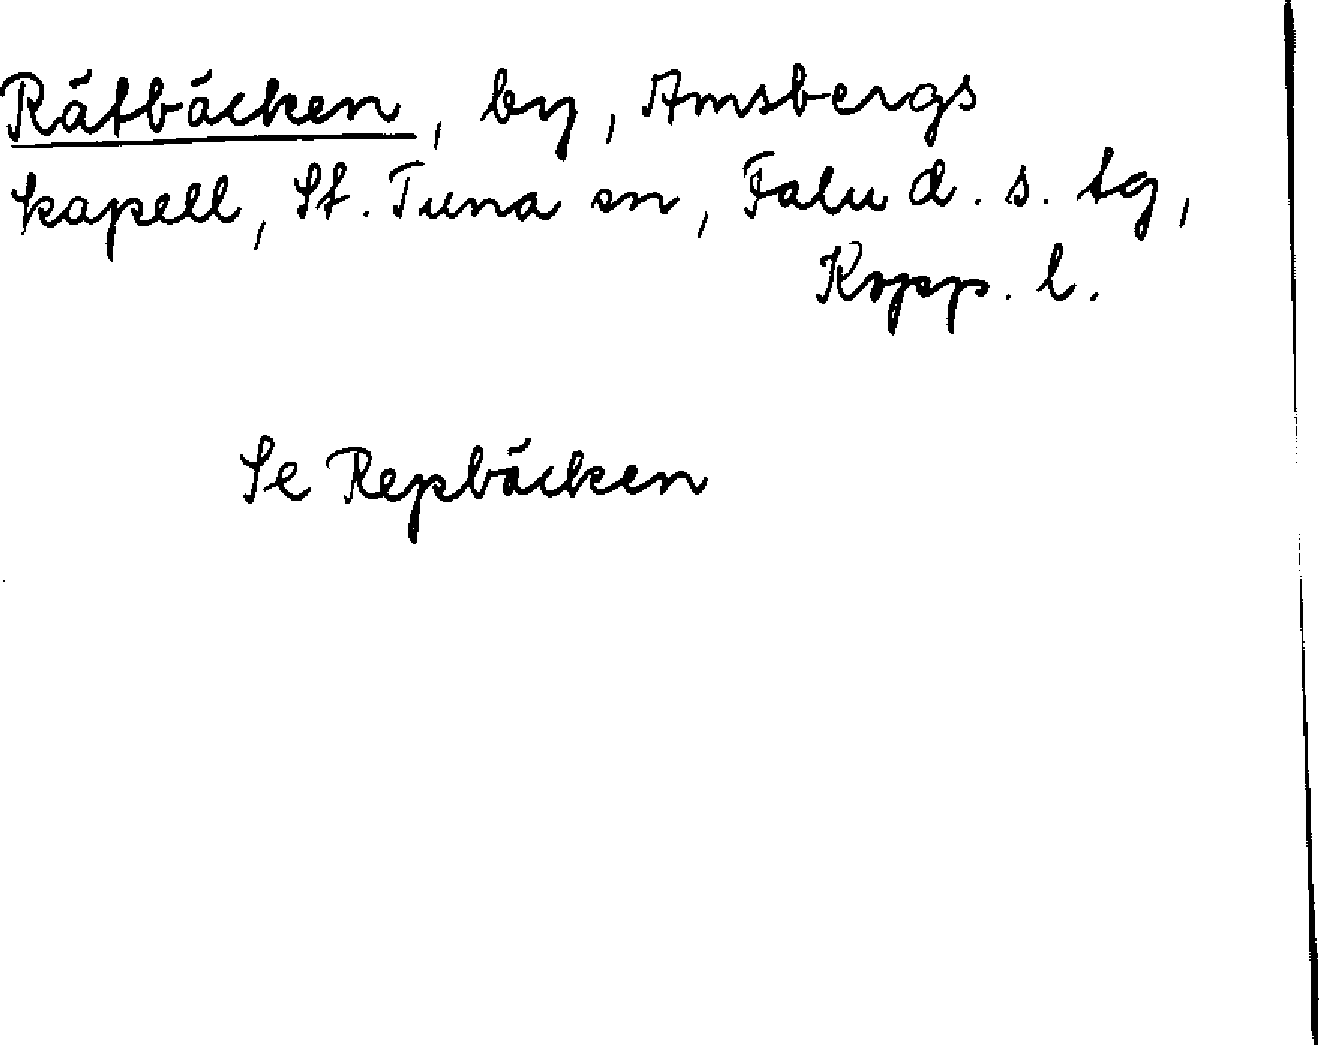 Rätbäcken, by, Amsbergs
kapell, St. Tuna sn, Falu d. s. tg,
Kopp. l.
Se Repbäcken